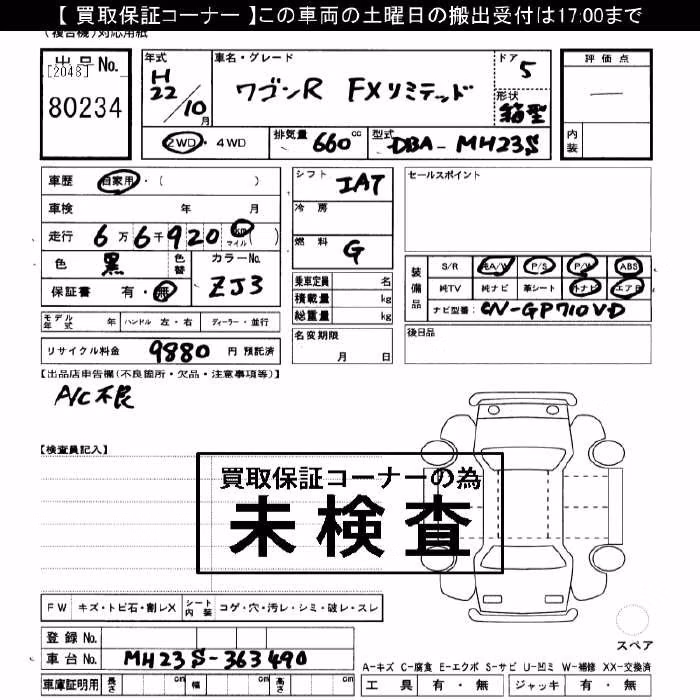 【 買取保証コーナー 】この車両の土曜日の搬出受付は17:00まで
(複合機)対応用紙
出品No. [2048] 80234
年式 H22/10月
車名・グレード ワゴンR FXリミテッド
ドア 5
形状 箱型
評価点 ー
内装
2WD・4WD
排気量 660cc
型式 DBA-MH23S
車歴 自家用・( )
車検 年 月
走行 6万6千920 km マイル ( )
色 黒 色替 カラーNo. ZJ3
保証書 有・無
モデル年式 年 ハンドル 左・右 ディーラー・並行
リサイクル料金 9880 円 預託済
シフト IAT
冷房
燃料 G
乗車定員 名
積載量 kg
総重量 kg
名変期限 月 日
セールスポイント
装備品 S/R 純A/W P/S P/W ABS
純TV 純ナビ 革シート 外ナビ エアB
ナビ型番( CN-GP710VD
後日品
【出品店申告欄(不良箇所・欠品・注意事項等)】
A/C不良
【検査員記入】
買取保証コーナーの為
未検査
FW キズ・トビ石・割レX シート内装 コゲ・穴・汚レ・シミ・破レ・スレ
登録No.
車台No. MH23S-363490
車庫証明用 長さ cm 幅 cm 高さ cm
スペア
A-キズ C-腐食 E-エクボ S-サビ U-凹ミ W-補修 XX-交換済
工具 有・無 ジャッキ 有・無